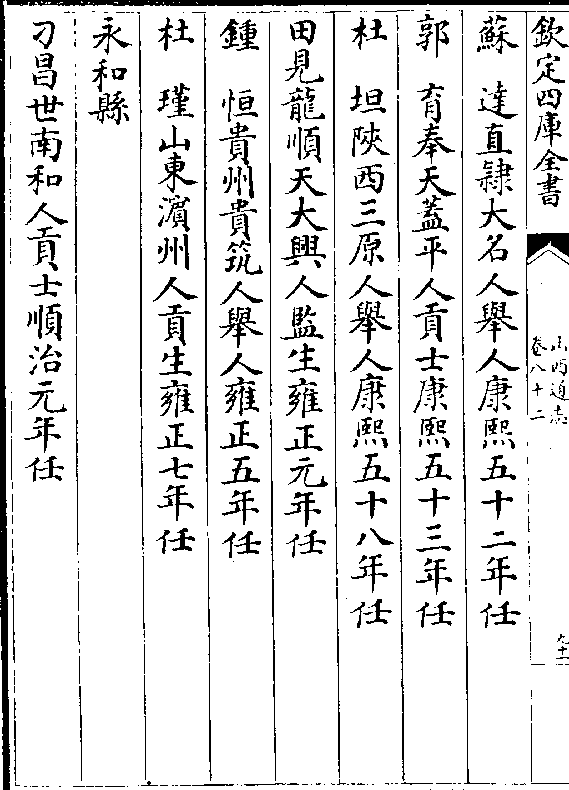 欽定四庫全書
山西通志
卷八十二
蘇 達直隸大名人舉人康熙五十二年任
郭 育奉天蓋平人貢士康熙五十三年任
杜 坦陜西三原人舉人康熙五十八年任
田見龍順天大興人監生雍正元年任
鍾 恒貴州貴筑人舉人雍正五年任
杜 瑾山東濵州人貢生雍正七年任
永和縣
刁昌世南和人貢士順治元年任